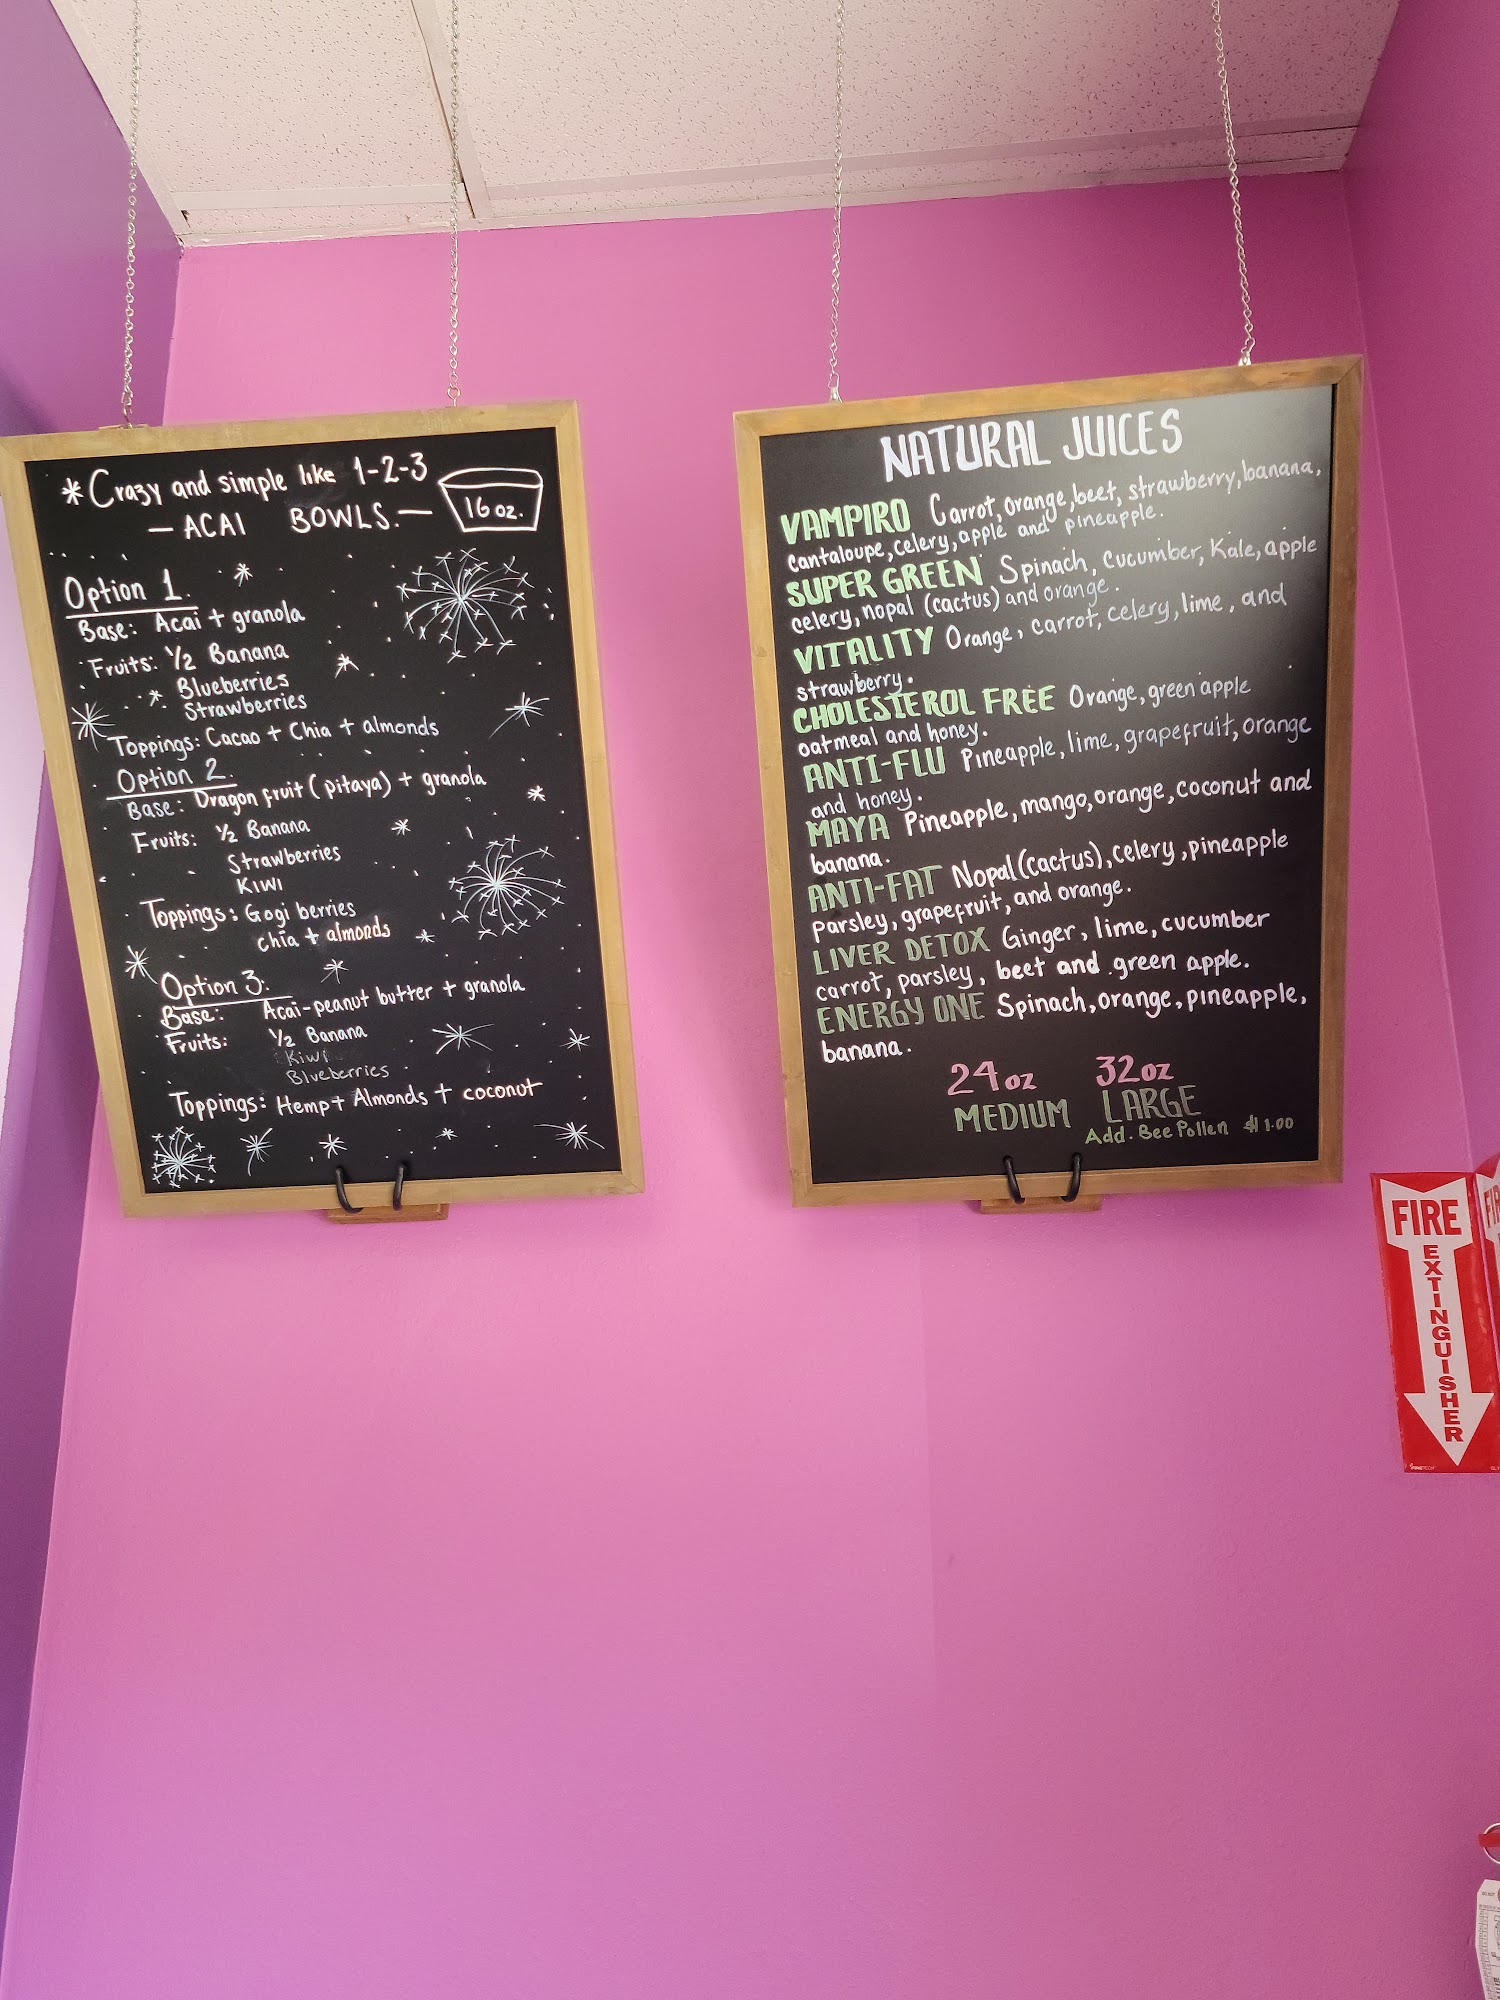 *Crazy and simple like 1-2-3
— ACAI BOWLS. —
16 oz.
Option 1.
Base: Acai + granola
Fruits: 1/2 Banana
Blueberries
Strawberries
Toppings: Cacao + Chia + almonds
Option 2.
Base: Dragon fruit (pitaya) + granola
Fruits: 1/2 Banana
Strawberries
KIWI
Toppings: Gogi berries
chia + almonds
Option 3.
Base: Acai-peanut butter + granola
Fruits: 1/2 Banana
Kiwi
Blueberries
Toppings: Hemp + Almonds + coconut
NATURAL JUICES
VAMPIRO Carrot, orange, beet, strawberry, banana,
cantaloupe, celery, apple and pineapple.
SUPER GREEN Spinach, cucumber, Kale, apple
celery, nopal (cactus) and orange.
VITALITY Orange, carrot, celery, lime, and
strawberry.
CHOLESTEROL FREE Orange, green apple
oatmeal and honey.
ANTI-FLU Pineapple, lime, grapefruit, orange
and honey.
MAYA Pineapple, mango, orange, coconut and
banana.
ANTI-FAT Nopal (cactus), celery, pineapple
parsley, grapefruit, and orange.
LIVER DETOX Ginger, lime, cucumber
carrot, parsley, beet and green apple.
ENERGY ONE Spinach, orange, pineapple,
banana.
24oz 32oz
MEDIUM LARGE
Add. Bee Pollen $1.00
FIRE
EXTINGUISHER